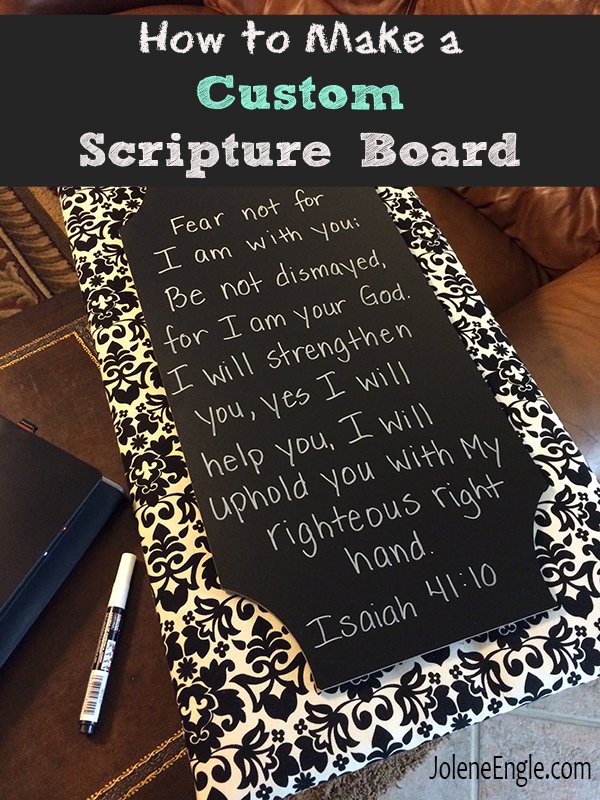 How to Make a
Custom
Scripture Board
Fear not for
I am with you:
Be not dismayed,
for I am your God.
I will strengthen
you, yes I will
help you, I will
uphold you with My
righteous right
hand.
Isaiah 41:10
JoleneEngle.com